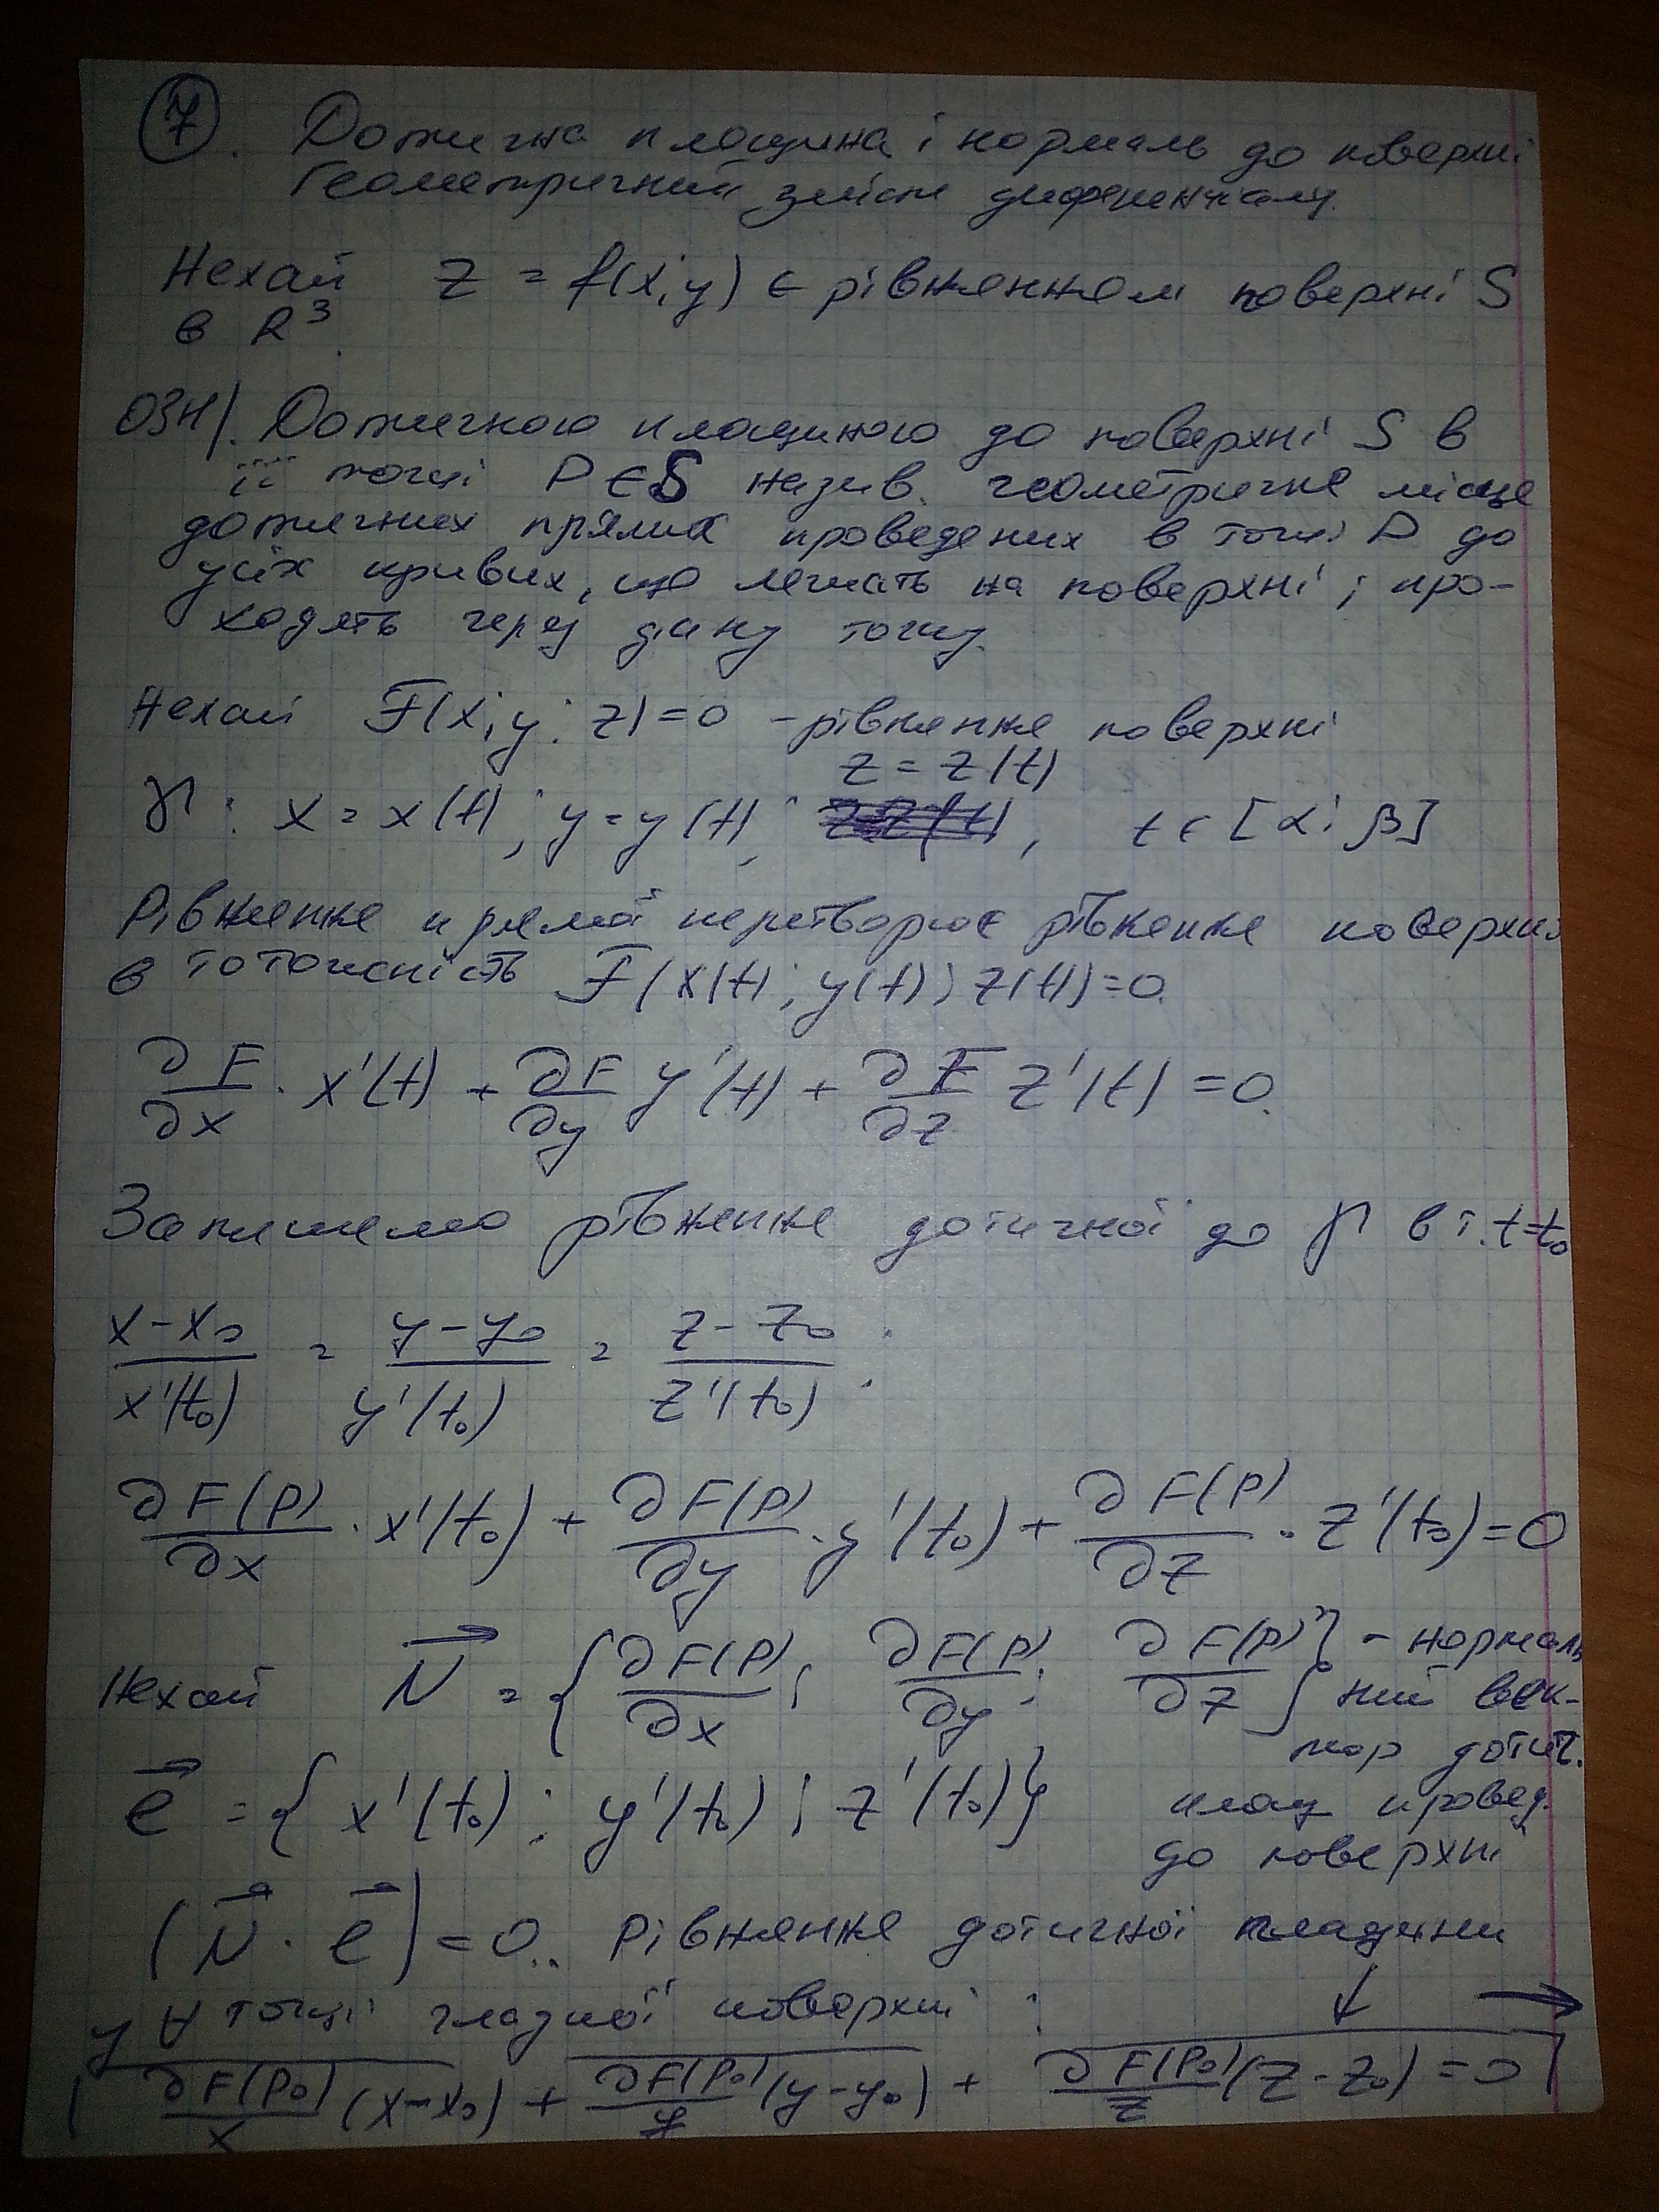 7. Дотична площина і нормаль до поверхні
Геометричний зміст диференціалу.
Нехай z = f(x; y) є рівнянням поверхні S
в R³.
ОЗН/. Дотичною площиною до поверхні S в
її точці P ∈ S назив. геометричне місце
дотичних прямих проведених в точці P до
усіх кривих, що лежать на поверхні і про-
ходять через дану точку.
Нехай F(x; y; z) = 0 - рівняння поверхні
z = z(t)
γ: x = x(t); y = y(t); , t ∈ [α; β]
Рівняння прямої перетворює рівняння поверхні
в тотожність F(x(t); y(t); z(t)) = 0.
∂F/∂x · x'(t) + ∂F/∂y y'(t) + ∂F/∂z z'(t) = 0.
Запишемо рівняння дотичної до γ в т. t=t₀
x-x₀/x'(t₀) = y-y₀/y'(t₀) = z-z₀/z'(t₀) ;
∂F(P)/∂x · x'(t₀) + ∂F(P)/∂y · y'(t₀) + ∂F(P)/∂z · z'(t₀) = 0
Нехай N⃗ = {∂F(P)/∂x ; ∂F(P)/∂y ; ∂F(P)/∂z} - нормаль
ний век-
тор дотич.
e⃗ = {x'(t₀) ; y'(t₀) ; z'(t₀)} площ провед.
до поверхні
(N⃗ · e⃗) = 0.. Рівняння дотичної площини
у ∀ точці гладкої поверхні : ↓ →
∂F(P₀)/x (x-x₀) + ∂F(P₀)/y (y-y₀) + ∂F(P₀)/z (z-z₀) = 0